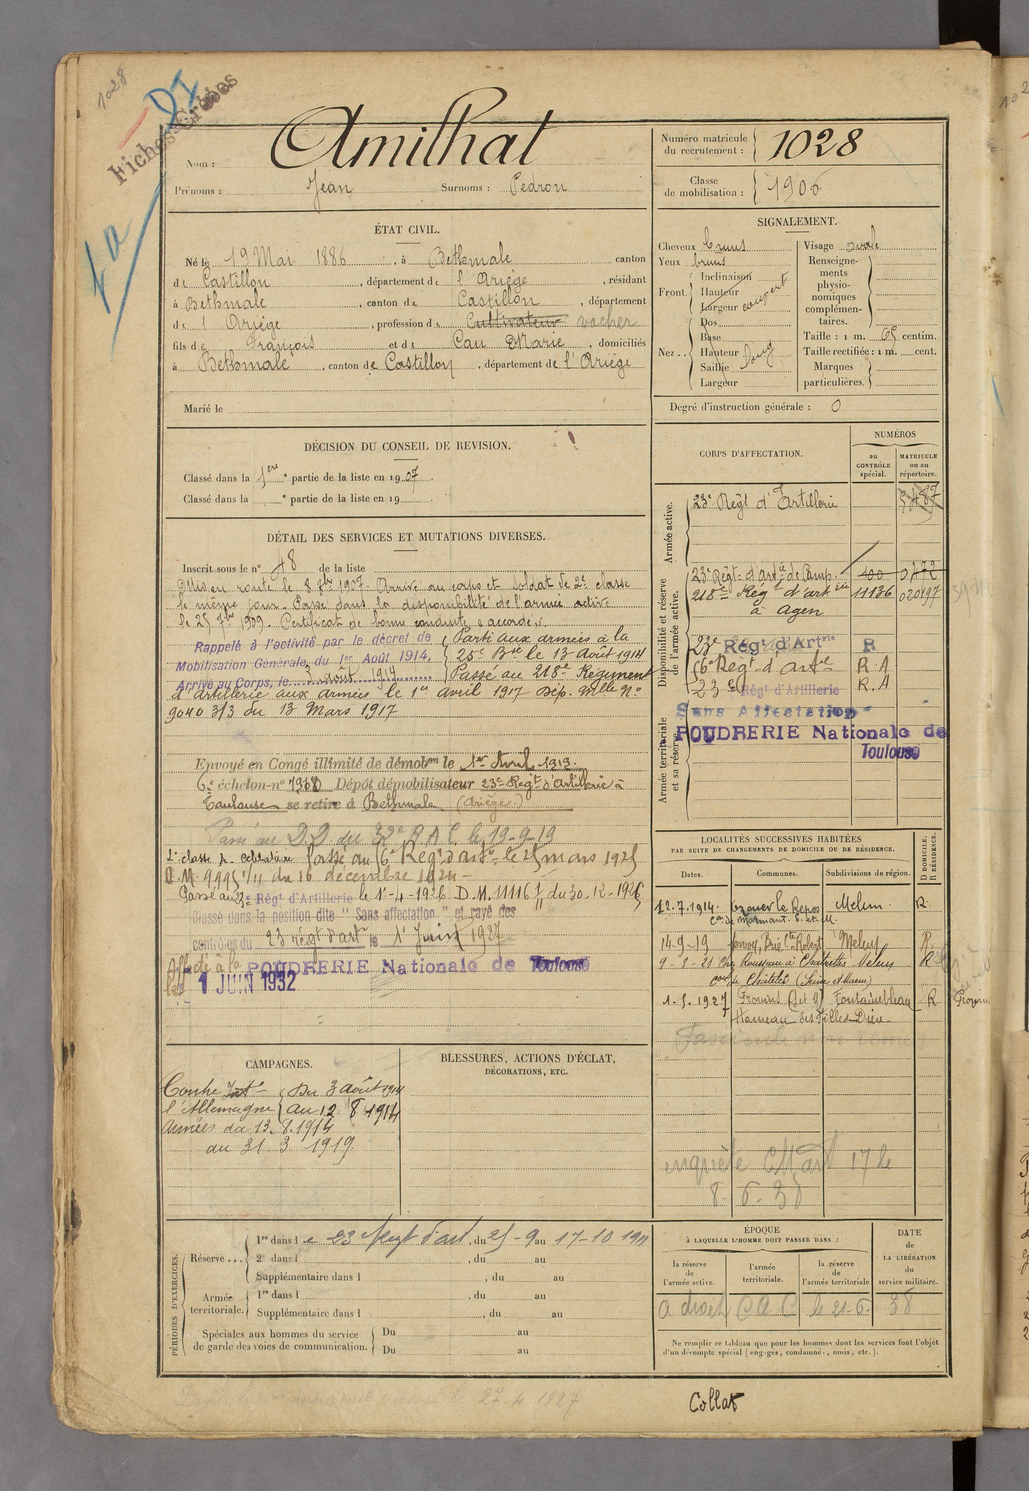 1028
DI
Fiches Créées
Nom : Amilhat
Prénoms : Jean Surnoms : Pedron
Numéro matricule du recrutement : 1028
Classe de mobilisation : 1906
ÉTAT CIVIL.
Né le 19 Mai 1886, à Bethmale canton
de Castillon, département de l'Ariège, résidant
à Bethmale, canton de Castillon, département
de l'Ariège, profession de Cultivateur vacher
fils de François et de Cau Marie, domiciliés
à Bethmale, canton de Castillon, département de l'Ariège
Marié le
SIGNALEMENT.
Cheveux bruns
Yeux bruns
Front. Inclinaison
Hauteur
Largeur
Nez... Dos
Base
Hauteur long
Saillie
Largeur
Visage ovale
Renseignements physionomiques complémentaires.
Taille : 1 m. 65 centim.
Taille rectifiée : 1 m. cent.
Marques particulières.
Degré d'instruction générale : 0
DÉCISION DU CONSEIL DE REVISION.
Classé dans la 1ère partie de la liste en 1907.
Classé dans la e partie de la liste en 19
DÉTAIL DES SERVICES ET MUTATIONS DIVERSES.
Inscrit sous le n° 48 de la liste
Mis en route le 8 8bre 1907. Arrivé au corps et soldat de 2e classe
le même jour. Passé dans la disponibilité de l'armée active
le 25 7bre 1909. Certificat de bonne conduite "accordé".
Rappelé à l'activité par le décret de
Mobilisation Générale, du 1er Août 1914.
Arrivé au Corps, le août 1914
Parti aux armées à la
25e Bie le 13 Août 1914
Passé au 218e Régiment
d'artillerie aux armées le 1er avril 1917 Dép. Mlle N°
9040 3/3 du 13 Mars 1917
Envoyé en Congé illimité de démobon le 1er Avril 1919.
6e échelon n° 1968 Dépôt démobilisateur 23e Régt d'Artillerie à
Toulouse se retire à Bethmale (Ariège)
Passé au D.D du 32e R.A.C. le 19-9-19
Passé au 6e Régt d'artie le 25 mars 1925
D.M. 9995 1/11 du 16 décembre 1924
Passé au 23e Régt d'Artillerie le 1-4-1926 D.M. 11116 1/11 du 30-12-1925
Classé dans la position dite "Sans affectation" et rayé des
contrôles du 23 régt d'art le 1 Juin 1927
Affecté à la POUDRERIE Nationale de Toulouse
le 1 JUIN 1932
CORPS D'AFFECTATION.
NUMÉROS
au CONTRÔLE spécial.
MATRICULE ou au répertoire.
Armée active.
23e Régt d'Artillerie 5487
Disponibilité et réserve de l'armée active.
23e Régt d'artie de Camp. 400 0472
218e Régt d'artrie 11136 020197
à Agen
23e Régt d'Artrie R
6e Régt d'artie R.A
23e Régt d'Artillerie R.A
Armée territoriale et sa réserve.
Sans Affectation
POUDRERIE Nationale de
Toulouse
LOCALITÉS SUCCESSIVES HABITÉES
PAR SUITE DE CHANGEMENTS DE DOMICILE OU DE RÉSIDENCE.
Dates. Communes. Subdivisions de région. D DOMICILE. R RÉSIDENCE.
12.7.1914. Grouer le Repos Melun R.
Con de Mormant. S. et M.
14-9-19 Brie Cte Robert Melun R.
9-1-21 Chez Rousseau à Chatelet Melun R
Con de Châtelet (Seine et Marne)
1.5.1927 Fontainebleau R
Hameau des Filles Dieu
enquête 17 le
8-6-38
CAMPAGNES.
Contre
l'Allemagne
Du 3 août 1914
au 12 8 1914
Armées du 13.8.1914
au 31 3 1919
BLESSURES, ACTIONS D'ÉCLAT,
DÉCORATIONS, ETC.
PÉRIODES D'EXERCICES.
Réserve... 1re dans le 23 Régt d'art, du 25-9 au 17-10 1911
2e dans l , du au
Supplémentaire dans l , du au
Armée territoriale. 1re dans l , du au
Supplémentaire dans l , du au
Spéciales aux hommes du service de garde des voies de communication. Du au
Du au
ÉPOQUE
À LAQUELLE L'HOMME DOIT PASSER DANS :
la réserve de l'armée active.
l'armée territoriale.
la réserve de l'armée territoriale
DATE de LA LIBÉRATION du service militaire.
a droit C A C le 21-6-38
Ne remplir ce tableau que pour les hommes dont les services font l'objet
d'un décompte spécial (engagés, condamnés, omis, etc.).
27-4-1927
Collat